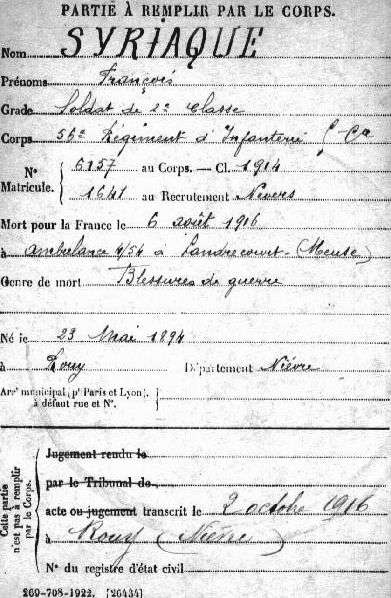 PARTIE À REMPLIR PAR LE CORPS.
Nom SYRIAQUE
Prénoms François
Grade Soldat de 2e Classe
Corps 56e Régiment d'Infanterie
N° Matricule. 6157 au Corps. — Cl. 1914
1641 au Recrutement Nevers
Mort pour la France le 6 août 1916
à ambulance 4/54 à Landrecourt (Meuse)
Genre de mort Blessures de guerre
Né le 23 Mai 1894
à Rouy Département Nièvre
Arr' municipal (p' Paris et Lyon),
à défaut rue et N°.
Cette partie n'est pas à remplir par le Corps.
Jugement rendu le
par le Tribunal de
acte ou jugement transcrit le 2 octobre 1916
à Rouy (Nièvre)
N° du registre d'état civil
269-708-1922. [26434]